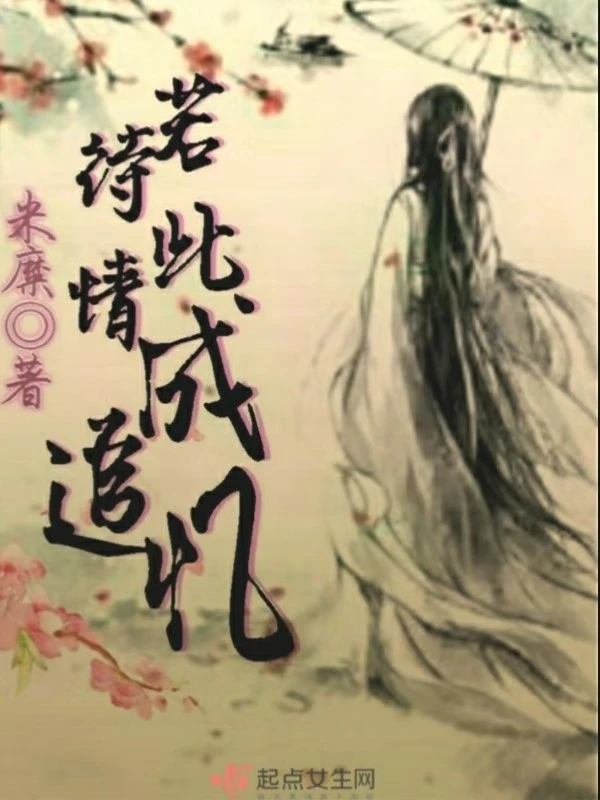 若待此情成追忆
米糜◎著
起点女生网